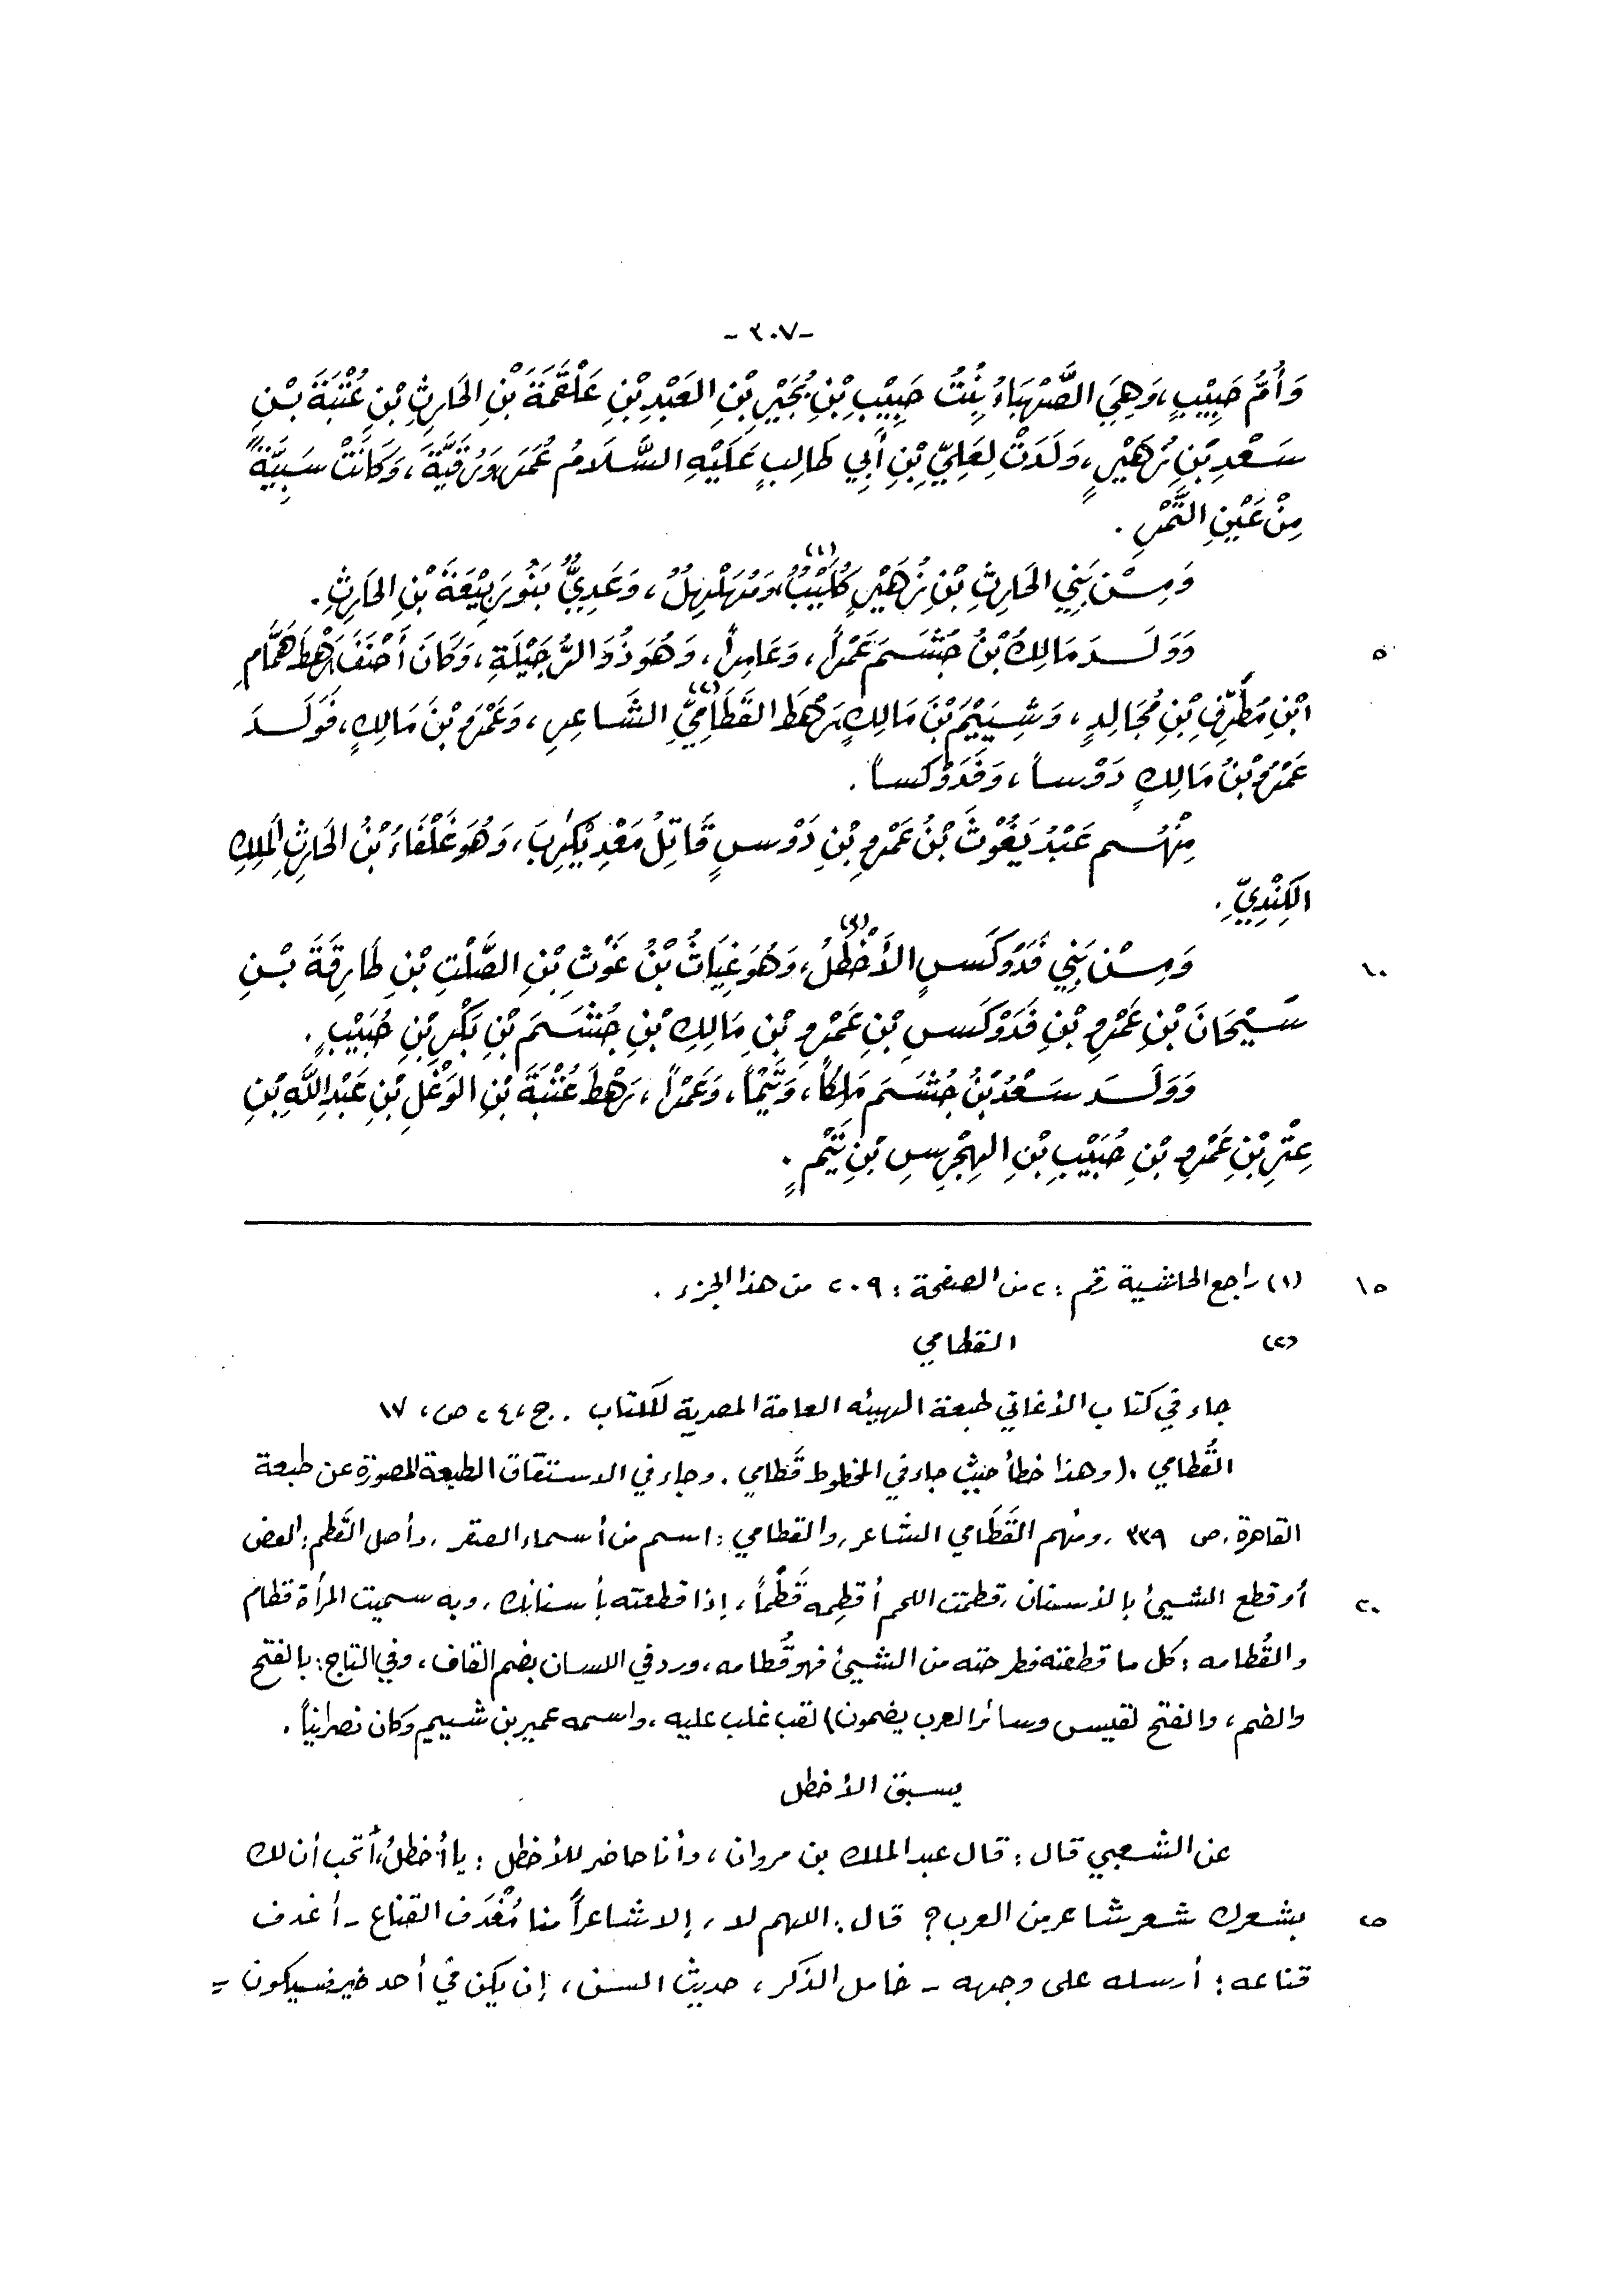 -٣٠٧-
وَأُمُّ حَبِيْبٍ، وَهِيَ الصَّهْبَاءُ بِنْتُ حَبِيْبِ بْنِ بُجَيْرِ بْنِ العَبْدِ بْنِ عَلْقَمَةَ بْنِ الحَارِثِ بْنِ عُتْبَةَ بْنِ
سَعْدِ بْنِ زُهَيْرٍ، وَلَدَتْ لِعَلِيِّ بْنِ أَبِي طَالِبٍ عَلَيْهِ السَّلَامُ عُمَرَ وَرُقَيَّةَ، وَكَانَتْ سَبِيَّةً
مِنْ عَيْنِ التَّمْرِ .
وَمِنْ بَنِي الحَارِثِ بْنِ زُهَيْرٍ كُلَيْبٌ(١)، وَمُهَلْهِلٌ، وَعَدِيٌّ بَنُو رَبِيْعَةَ بْنِ الحَارِثِ.
٥ وَوَلَدَ مَالِكُ بْنُ جُشَمَ عَمْراً، وَعَامِراً، وَهُوَ ذُو الرُّجَيْلَةِ، وَكَانَ أَحْنَفَ رَهْطَ هَمَّامِ
ابْنِ مُطَرِّفِ بْنِ مُجَالِدٍ، وَشِيَيْمَ بْنَ مَالِكٍ رَهْطَ القَطَامِيِّ(٢) الشَّاعِرِ، وَعَمْرَو بْنَ مَالِكٍ، فَوَلَدَ
عَمْرُو بْنُ مَالِكٍ دَوْساً، وَفَدَوْكَساً .
مِنْهُم عَبْدُ يَغُوْثَ بْنُ عَمْرِو بْنِ دَوْسٍ قَاتِلُ مَعْدِيْكَرِبَ، وَهُوَ غَلْفَاءُ بْنُ الحَارِثِ المَلِكِ
الكِنْدِيِّ .
١٠ وَمِنْ بَنِي فَدَوْكَسٍ الأَخْطَلُ(٣)، وَهُوَ غِيَاثُ بْنُ غَوْثِ بْنِ الصَّلْتِ بْنِ طَارِقَةَ بْنِ
سَيْحَانَ بْنِ عَمْرِو بْنِ فَدَوْكَسِ بْنِ عَمْرِو بْنِ مَالِكِ بْنِ جُشَمَ بْنِ بَكْرِ بْنِ حُبَيْبٍ .
وَوَلَدَ سَعْدُ بْنُ جُشَمَ مَالِكاً، وَتَيْماً، وَعَمْراً، رَهْطَ عُتْبَةَ بْنِ الوَغْلِ بْنِ عَبْدِ اللَّهِ بْنِ
عِتْرِ بْنِ عَمْرِو بْنِ حُبَيْبِ بْنِ الهِجْرِسِ بْنِ تَيْمٍ .
١٥ (١) راجع الحاشية رقم : ٢ من الصفحة : ٢٠٩ من هذا الجزء .
(٢) القطامي
جاء في كتاب الأغاني طبعة الهيئه العامة المصرية للكتاب . ج، ٢٤ ص، ١٧
القُطامي .(وهذا خطأ حيث جاء في المخطوط قَطامي . وجاء في الاستقاق الطبعة المصورة عن طبعة
القاهرة، ص ٣٣٩ ، ومنهم القَطَامي الشاعر، والقطامي : اسم من أسماء الصقر ، وأصل القَطم : العض
٢٠ أو قطع الشيئ بالأسنان، قطمت اللحم أقطِمه قَطْماً، إذا قطعته بأسنانك ، وبه سميت المرأة قطام
والقُطامه : كل ما قطعته فطرحته من الشيئ فهو قُطامه، ورد في اللسان بضم القاف، وفي التاج : بالفتح
والضم، والفتح لقيس وسائر العرب يضمون) لقب غلب عليه، واسمه عمير بن شييم وكان نصرانياً .
يسبق الأخطل
عن الشعبي قال : قال عبد الملك بن مروان، وأنا حاضر للأخطل : يا أخطلُ، أتحب أن لك
٢٥ بشعرك شعر شاعر من العرب؟ قال : اللهم لا ، إلا شاعراً منا مُغْدَف القناع - أغدف
قناعه : أرسله على وجهه - خامل الذكر، حديث السن، إن يكن في أحد خير فسيكون =